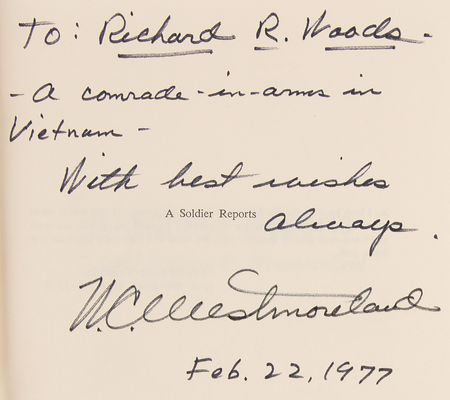 To: Richard R. Woods.
- A comrade-in-arms in
Vietnam -
With best wishes
A Soldier Reports
always.
W.C. Westmoreland
Feb. 22, 1977